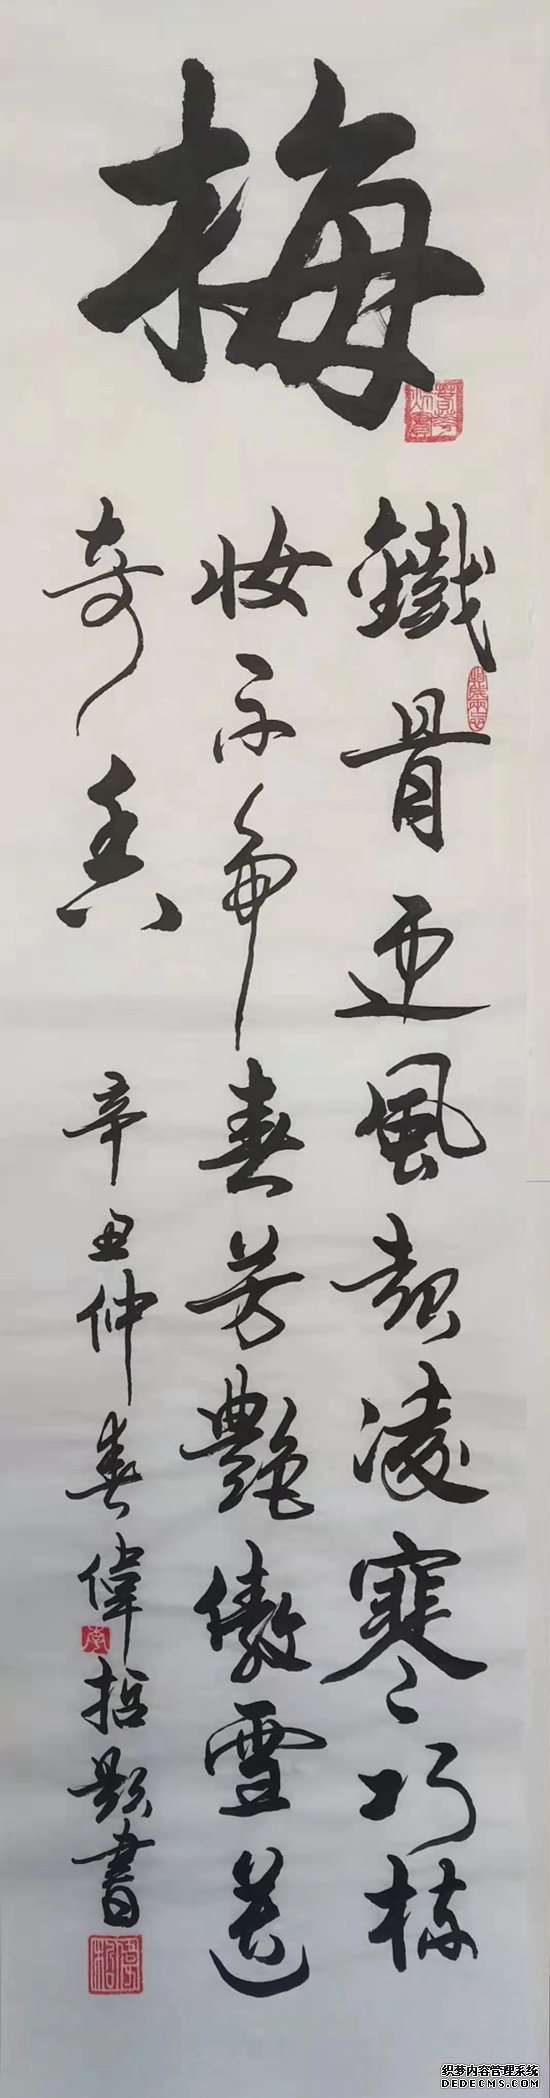 梅
鐵骨迎風凌寒巧梳
妝不争春芳艷傲雪送
奇香
辛丑仲春偉哲題書
织梦内容管理系统
DEDECMS.COM